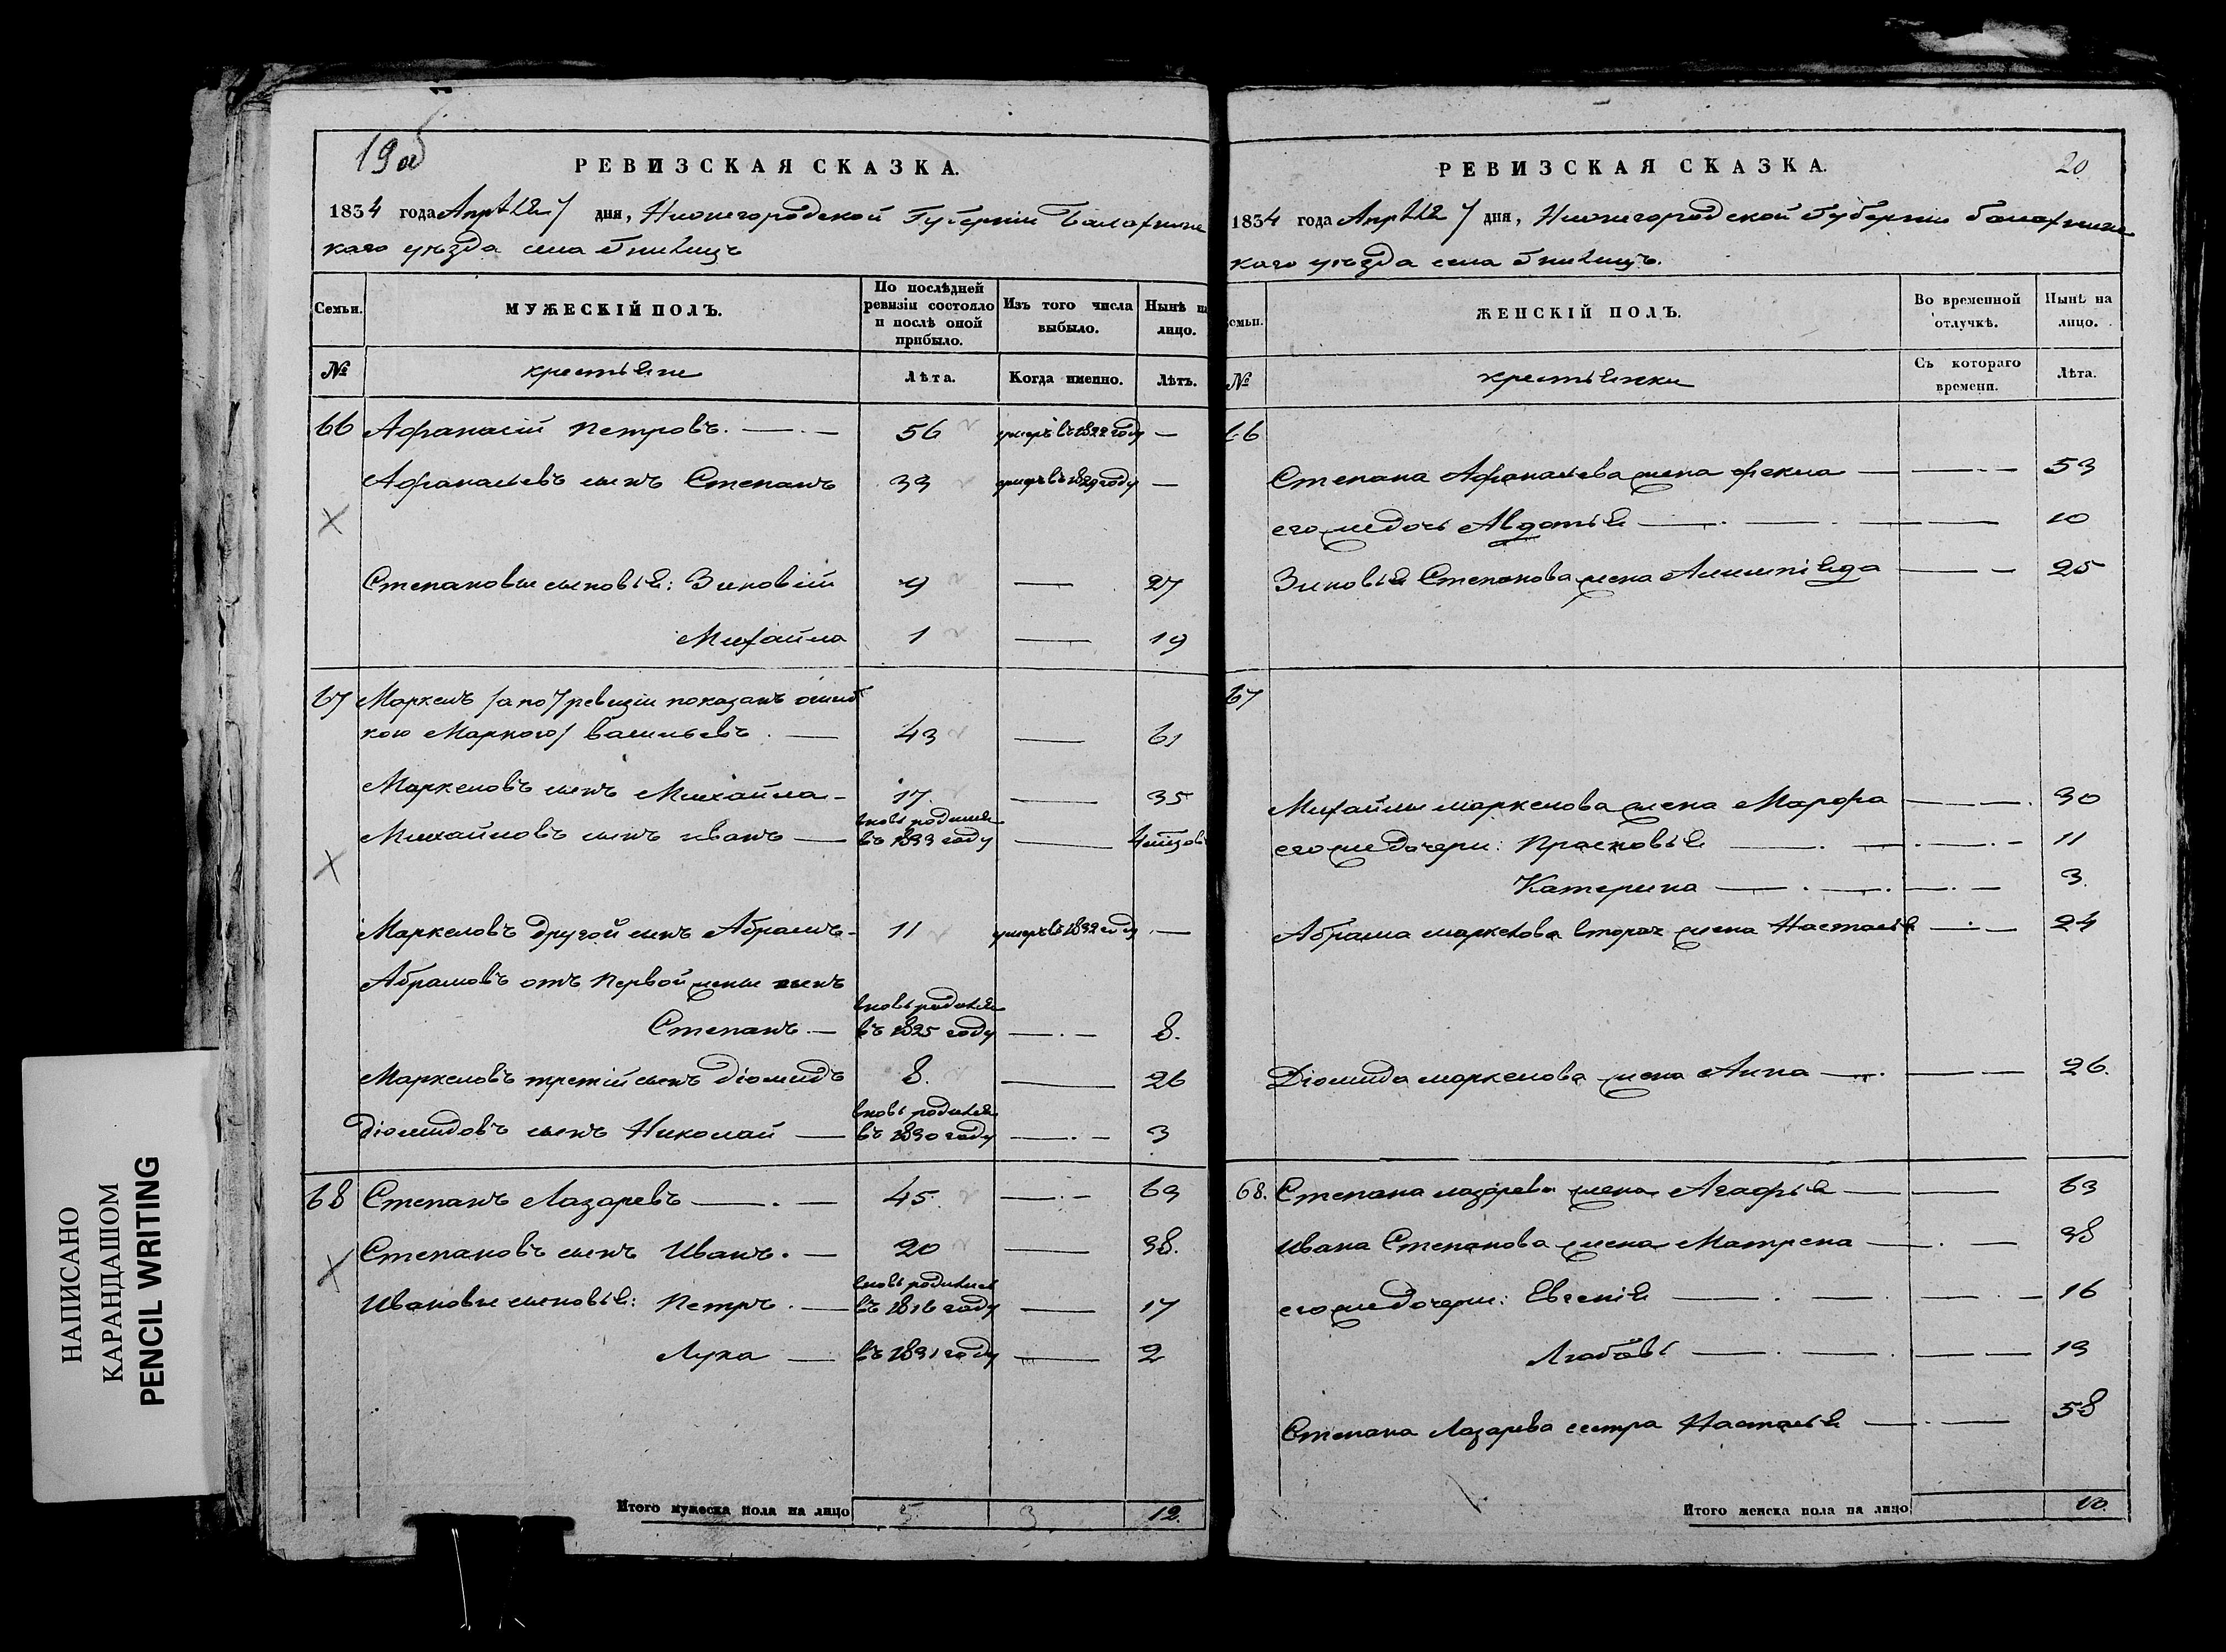 19об
РЕВИЗСКАЯ СКАЗКА.
1834 года Апрѣля 7 дня, Нижегородской Губерніи Балахнинс
каго уѣзда села Гнилицъ
Семьи.
МУЖЕСКІЙ ПОЛЪ.
По послѣдней ревизіи состояло и послѣ оной прибыло.
Изъ того числа выбыло.
Нынѣ на лицо.
№
крестьяне
Лѣта.
Когда именно.
Лѣтъ.
66 Афанасій Петровъ. 56 умеръ въ 1822 году —
Афанасьевъ сынъ Степанъ 33 умеръ въ 1829 году —
Степановы сыновья: Зиновій 9 — 27
Михайла 1 — 19
67 Маркелъ /а по 7 ревизіи показанъ ошиб
кою Маркою/ Васильевъ. — 43 — 61
Маркеловъ сынъ Михайла — 17 — 35
вновь родился
Михайловъ сынъ иванъ — въ 1833 году —
Маркеловъ другой сынъ Абрамъ — 11 умеръ въ 1832 году —
Абрамовъ отъ первой жены сынъ
вновь родился
Степанъ. — въ 1825 году — 8.
Маркеловъ третій сынъ діомидъ 8. — 26
вновь родился
діомидовъ сынъ Николай — въ 1830 году — 3
68 Степанъ Лазаревъ — 45. — 63
Степановъ сынъ Иванъ. — 20 — 38.
вновь родились
Ивановы сыновья: Петръ. — въ 1816 году — 17
Лука — въ 1831 году — 2
Итого мужеска пола на лицо 5 3. 12.
20
РЕВИЗСКАЯ СКАЗКА.
1834 года Апрѣля 7 дня, Нижегородской Губерніи Балахнинс
каго уѣзда села Гнилицъ.
Семьи.
ЖЕНСКІЙ ПОЛЪ.
Во временной отлучкѣ.
Нынѣ на лицо.
№
крестьянки
Съ котораго времени.
Лѣта.
66
Степана Афанасьева жена Фекла — 53
его же дочь Авдотья — 10
Зиновья Степанова жена Алимпіяда — 25
67
Михайлы маркелова жена Марфа — 30
его же дочери: Прасковья — 11
Катерина — 3.
Абрама маркелова вторая жена Настасья — 24
Діомида маркелова жена Анна — 26.
68. Степана лазарева жена Агафья — 63
ивана Степанова жена Матрена — 38
его же дочери: Евгенія — 16
Любовь — 13
Степана Лазарева сестра Настасья — 58
Итого женска пола на лицо 10.
НАПИСАНО
КАРАНДАШОМ
PENCIL WRITING